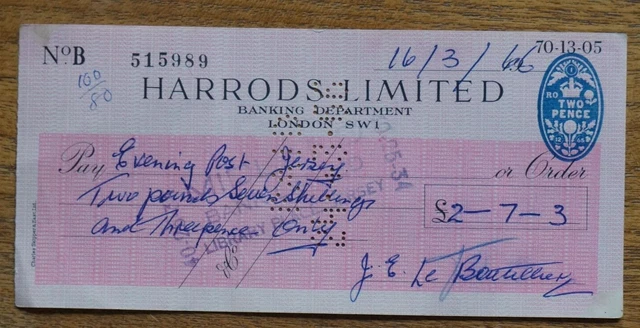 NºB 515989 16/3/66 70-13-05
100/80
HARRODS LIMITED
BANKING DEPARTMENT
LONDON SW1
RO TWO PENCE
Pay Evening Post Jersey or Order
Two pounds Seven Shillings
and Threepence Only
£2-7-3
J. E. Le
LIBRARY JERSEY